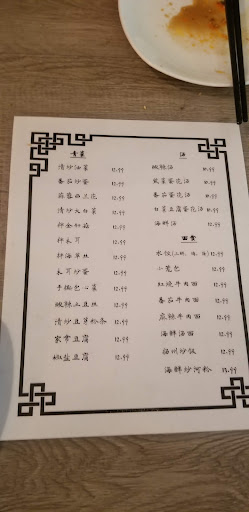 青菜
清炒油菜 12.99
番茄炒蛋 12.99
蒜蓉西兰花 12.99
清炒大白菜 12.99
拌金针菇 12.99
拌木耳 12.99
拌海草丝 12.99
木耳炒蛋 12.99
手撕包心菜 12.99
酸辣土豆丝 12.99
清炒豆芽粉条 12.99
家常豆腐 12.99
椒盐豆腐 12.99
汤
酸辣汤 8.99
紫菜蛋花汤 8.99
番茄蛋花汤 8.99
白菜豆腐蛋花汤 8.99
海鲜汤
面食
水饺 12.99
小笼包 12.99
红烧牛肉面 12.99
番茄牛肉面 12.99
麻辣牛肉面 12.99
海鲜汤面 12.99
扬州炒饭 12.99
海鲜炒河粉 12.99